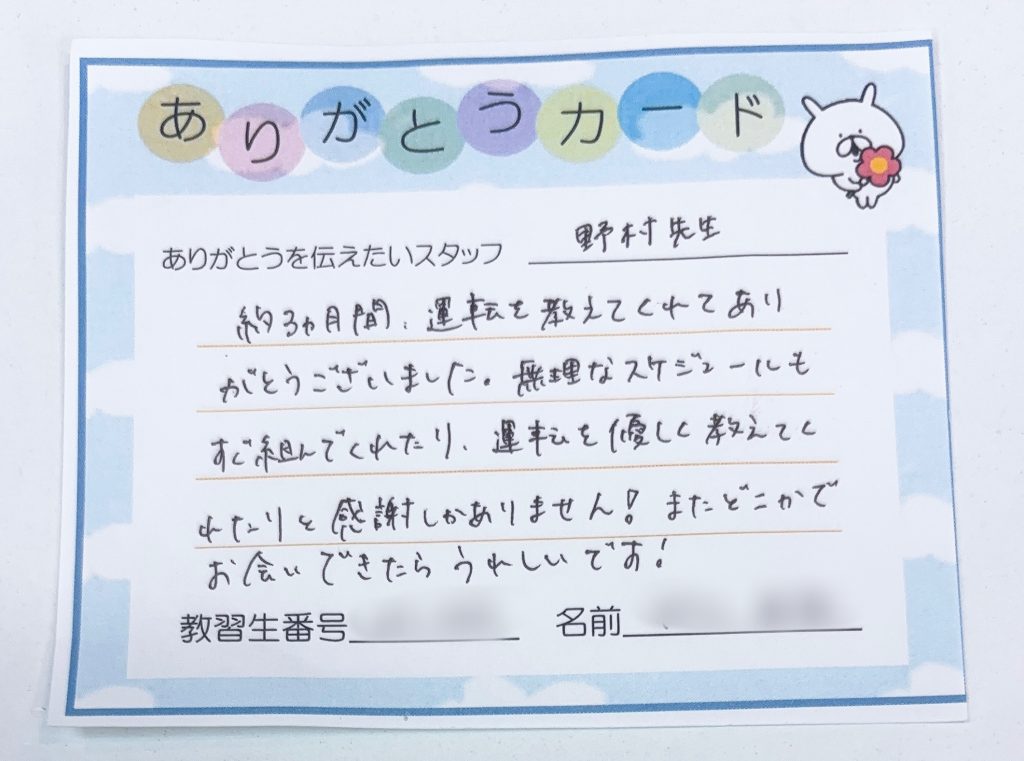 ありがとうカード
ありがとうを伝えたいスタッフ 野村先生
約3ヵ月間、運転を教えてくれてあり
がとうございました。無理なスケジュールも
すぐ組んでくれたり、運転を優しく教えてく
れたりと感謝しかありません！またどこかで
お会いできたらうれしいです！
教習生番号 名前